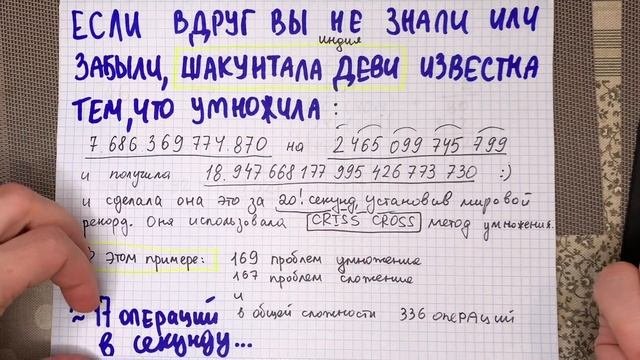 ЕСЛИ ВДРУГ ВЫ НЕ ЗНАЛИ ИЛИ
индия
ЗАБЫЛИ, ШАКУНТАЛА ДЕВИ ИЗВЕСТНА
ТЕМ, ЧТО УМНОЖИЛА :
7 686 369 774.870 на 2465 099 745 799
и получила 18.947 668 177 995 426 773 730 :)
и сделала она это за 20! секунд, установив мировой
рекорд. Она использовала CRISS CROSS метод умножения.
Этом примере: 169 проблем умножение
167 проблем сложение
и
в общей сложности 336 ОПЕРАЦИЙ
~ 17 ОПЕРАЦИЙ
В СЕКУНДУ...